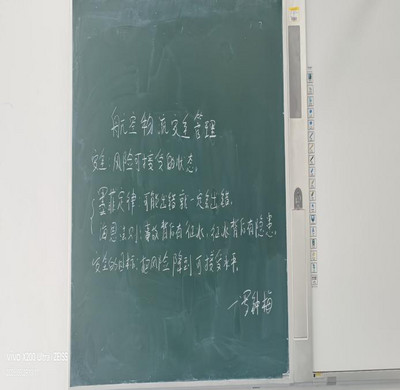 航空物流安全管理
安全 风险可接受的状态。
墨菲定律 可能出错就一定会出错。
海恩法则：事故背后有征兆，征兆背后有隐患。
安全的目标：把风险降到可接受水平。
—罗钟梅